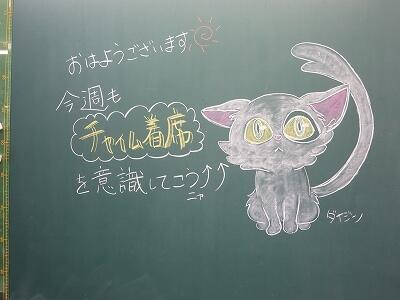 おはようございます
今週も
チャイム着席
を意識してこう↑↑
ニャ
ダイジン